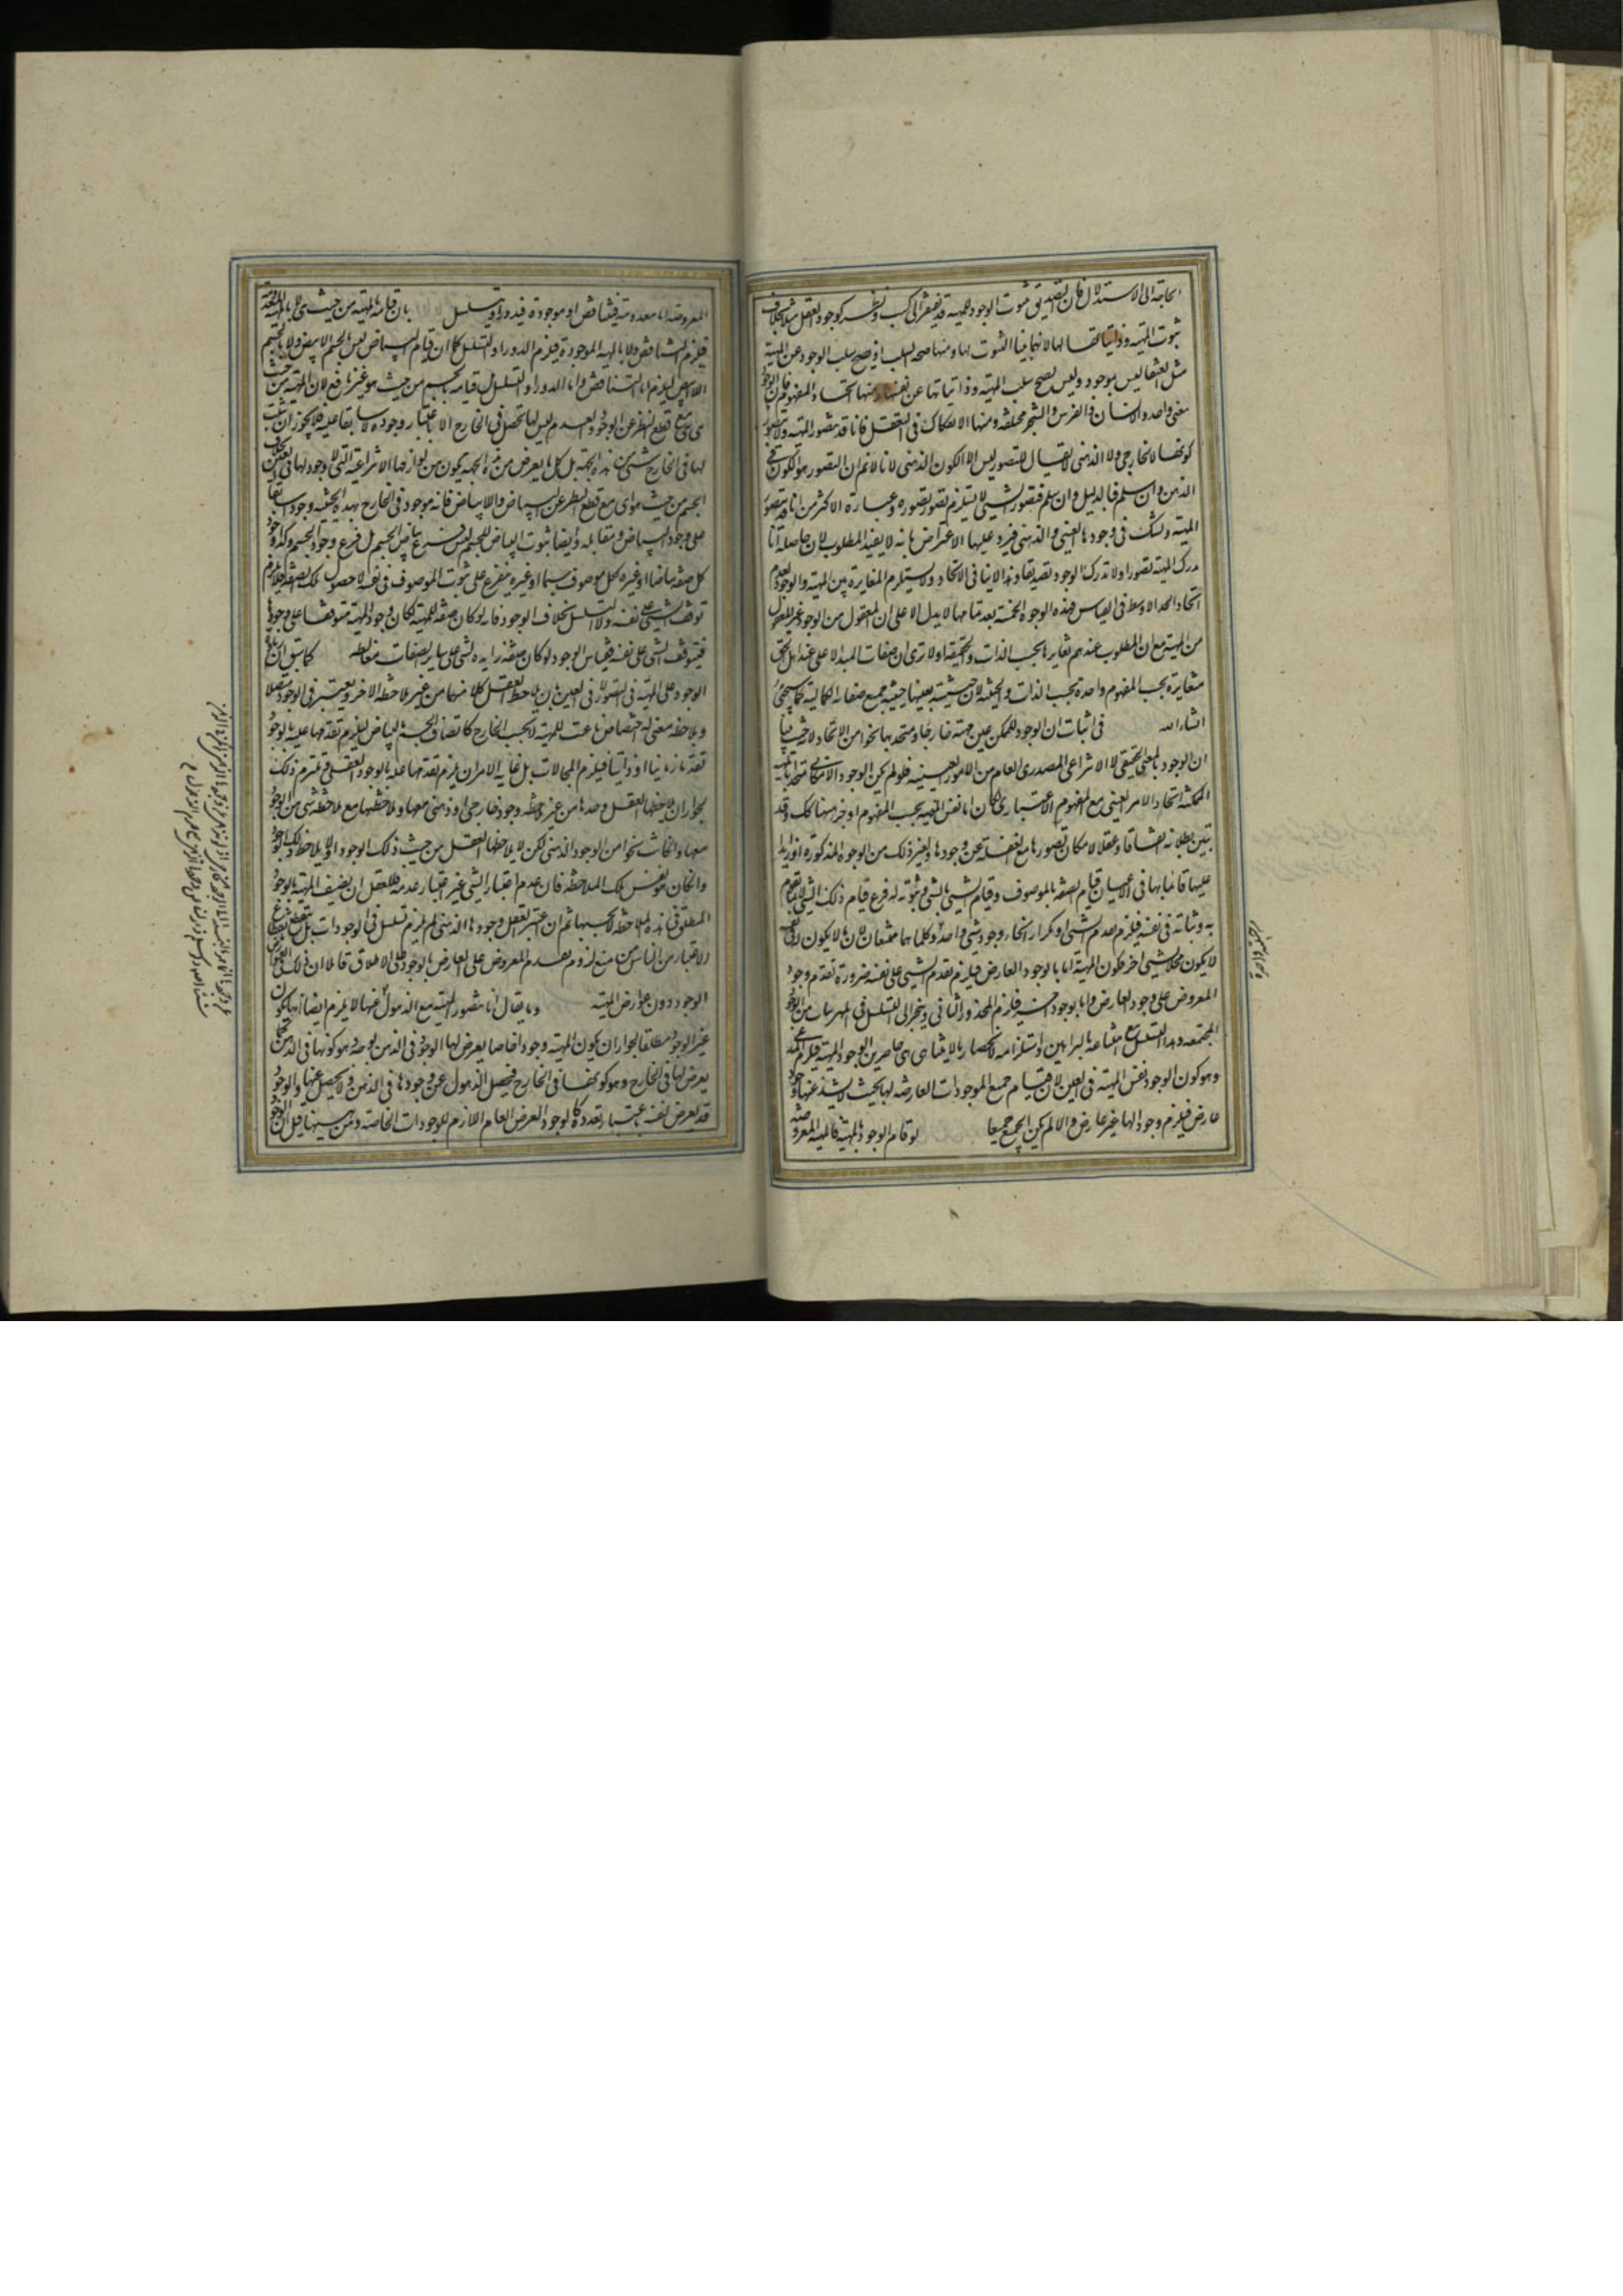 الحاجة الى الاستدلال فان التصديق بثبوت الوجود للمهية قد يفتقر الى كسب ونظر كوجود العقل مثلا بخلاف
ثبوت المهية وذاتياتها لها لانهما بينا الثبوت لها ومنها صحة السلب اذ يصح سلب الوجود عن المهية
مثل العنقا ليس بموجود وليس يصح سلب المهية وذاتياتها عن نفسها ومنها اتحاد المفهوم فان الوجود
معنى واحد والانسان والفرس والشجر مختلفة ومنها الانفكاك فى التعقل فانا قد نتصور المهية ولا نتصور
كونها لا الخارجى ولا الذهنى لا يقال التصور ليس الا الكون الذهنى لانا لا نم ان التصور هو الكون فى
الذهن وان سلم فبالدليل وان سلم فتصور الشيى لا يستلزم تصور تصوره وعبارة الاكثر من انا قد نتصور
المهية ونشك فى وجودها العينى والذهنى فيرد عليها الاعتراض بانه لا يفيد المطلوب لان حاصله انا
ندرك المهية تصورا ولا ندرك الوجود تصديقا وهذا لا ينافى الاتحاد ولا يستلزم المغايرة بين المهية والوجود لعدم
اتحاد الحد الاوسط فى القياس فهذه الوجوه الخمسة بعد تمامها لا يدل الا على ان المعقول من الوجود غير المعقول
من المهية مع ان المطلوب عندهم تغايرهما بحسب الذات والحقيقة اولا ترى ان صفات المبدا الاعلى عند اهل الحق
متغايرة بحسب المفهوم واحدة بحسب الذات والحيثية لان حيثية بعينها حيثية جميع صفاته الكمالية كما سيجئ
انشاء الله فى اثبات ان الوجود للممكن عين مهيته خارجا ومتحد بها نحوا من الاتحاد لا حيث بينا
ان الوجود بالمعنى الحقيقى لا الانتزاعى المصدرى العام من الامور العينية فلو لم يكن الوجود الامكانى متحدا بالمهية
الممكنة اتحاد الامر العينى مع المفهوم الاعتبارى لكان اما نفس المهية بحسب المفهوم او جزء منها كك وقد
تبين بطلانه اتفاقا وعقلا لامكان تصورها مع الغفلة عن وجودها ولغير ذلك من الوجوه المذكورة او زايدا
عليها قائما بها فى الاعيان قيام الصفة بالموصوف وقيام الشيى بالشى وثبوته له فرع قيام ذلك الشيى اى
به وثباته فى نفسه فيلزم تقدم الشيى او تكرار انحاء وجود شيى واحد وكلاهما ممتنعان لان ما لا يكون له فى نفسه
لا يكون محلا لشيى اخر فكون المهية اما بالوجود العارض فيلزم تقدم الشيى على نفسه ضرورة تقدم وجود
المعروض على وجود العارض واما بوجود اخر فيلزم المحذور الثانى وينجر الى التسلسل فى المترتبات من الوجود
المجتمعة وهذا التسلسل مع امتناعه بالبراهين واستلزامه لانحصار ما لا يتناهى بين حاصرين الوجود والمهية يستلزم المدعى
وهو كون الوجود نفس المهية فى العين لان قيام جميع الموجودات العارضة لها بحيث لا يشذ عنها وجود
عارض فيلزم وجودا لها غير عارض والا لم يكن الجميع جميعا لو قام الوجود بالمهية فالمهية المعروضة
المعروضة اما معدومة فيتناقض او موجودة فيدور او يتسلسل بان قيامه بالمهية من حيث هى لا بالمهية المعدومة
فيلزم التناقض ولا بالمهية الموجودة فيلزم الدور او التسلسل كما ان قيام البياض ليس بالجسم الابيض ولا بالجسم
الا ابيض ليلزم اما التناقض واما الدور او التسلسل بل قيامه بالجسم من حيث هو غير نافع لان المهية من حيث
هى هى مع قطع النظر عن الوجود والعدم ليس لها تحصل فى الخارج الا باعتبار وجوده لا سابقا عليه فلا يجوز ان يثبت
لها فى الخارج شيى من هذه الجهة بل كل ما يعرض من هذه الجهة يكون من لوازمها الانتزاعية التى لا وجود لها فى العين بخلاف
الجسم من حيث هو اى مع قطع النظر عن البياض واللابياض فانه موجود فى الخارج بهذه الحيثية وجودا سابقا
على وجود البياض ومقابله وايضا ثبوت البياض للجسم ليس فرع بياض الجسم بل فرع وجود الجسم وكذا وجود
كل صفة بياضا او غيره لكل موصوف جسما او غيره يتفرع على ثبوت الموصوف فى نفسه لا حصول تلك الصفة فلا يلزم
توقف الشيى على نفسه ولا التسلسل بخلاف الوجود فانه لو كان صفة للمهية لكان وجود المهية متوقفا على وجودها
فيتوقف الشى على نفسه فقياس الوجود لو كان صفة زايدة لشى على ساير الصفات مغالطة كما سبق ان زيادة
الوجود على المهية فى التصور لا فى العين بان يلاحظ العقل كلا منهما من غير ملاحظة الاخر ويعتبر فى الوجود منفصلا
ويلاحظه معنى له اختصاص ناعت للمهية لا بحسب الخارج كاتصاف الجسم بالبياض ليلزم تقدمها عليه بالوجود
تقدما زمانيا او ذاتيا فيلزم المحالات بل غاية الامر ان يلزم تقدمها عليه بالوجود العقلى فنلتزم ذلك
لجواز ان يلاحظها العقل وحدها من غير ملاحظة وجود خارجى او ذهنى معها وملاحظتها مع ملاحظة شى من الوجود
معها وان كانت نحوا من الوجود الذهنى لكن لا يلاحظها العقل من حيث ذلك الوجود اذ لا يلاحظ ذلك الوجود
وان كان هو نفس تلك الملاحظة فان عدم اعتبار الشى غير اعتبار عدمه فللعقل ان يضيف المهية بالوجود
المطلق فى هذه الملاحظة لا بحسبها ثم ان اعتبر العقل وجودها الذهنى لم يلزم تسلسل فى الوجودات بل ينقطع بانقطاع
الاعتبار من الناس من منع لزوم تقدم المعروض على العارض بالوجود على الاطلاق قائلا ان ذلك فى عوارض
الوجود دون عوارض المهية وما يقال انا نتصور المهية مع الذهول عنها لا يلزم ايضا انها يكون
غير الوجود مطلقا لجواز ان يكون المهية وجودا خاصا يعرض لها الوجود فى الذهن بوجه وهو كونها فى الذهن كما
يعرض لها فى الخارج وهو كونها فى الخارج فيحصل الذهول عن وجودها فى الذهن ولا يحصل عنها والوجود
قد يعرض لنفسه باعتبار تعدده كالوجود العرض العام اللازم للوجودات الخاصة ومن سبيلها قيل الوجود